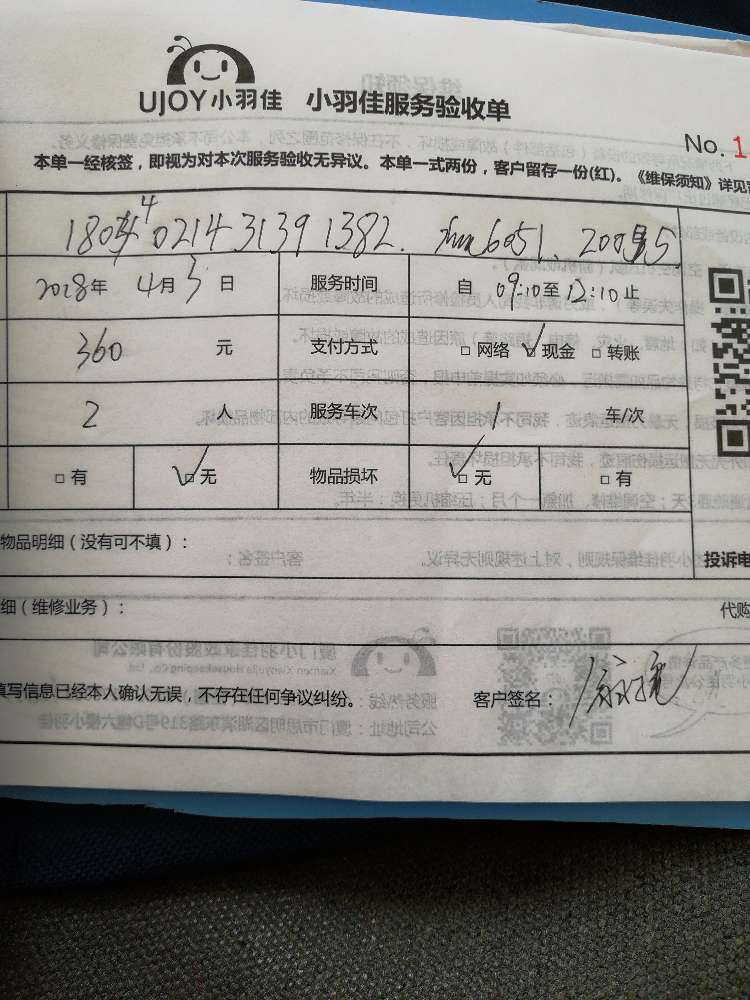 UJOY小羽佳 小羽佳服务验收单
No. 1
本单一经核签，即视为对本次服务验收无异议。本单一式两份，客户留存一份(红)。《维保须知》详见
2018年 4月3日 服务时间 自 09:10至12:10止
360 元 支付方式 □ 网络 ☑现金 □ 转账
2 人 服务车次 1 车/次
□ 有 ☑无 物品损坏 ☑ 无 □ 有
物品明细（没有可不填）：
投诉电
细（维修业务）：
代购
填写信息已经本人确认无误，不存在任何争议纠纷。 客户签名：